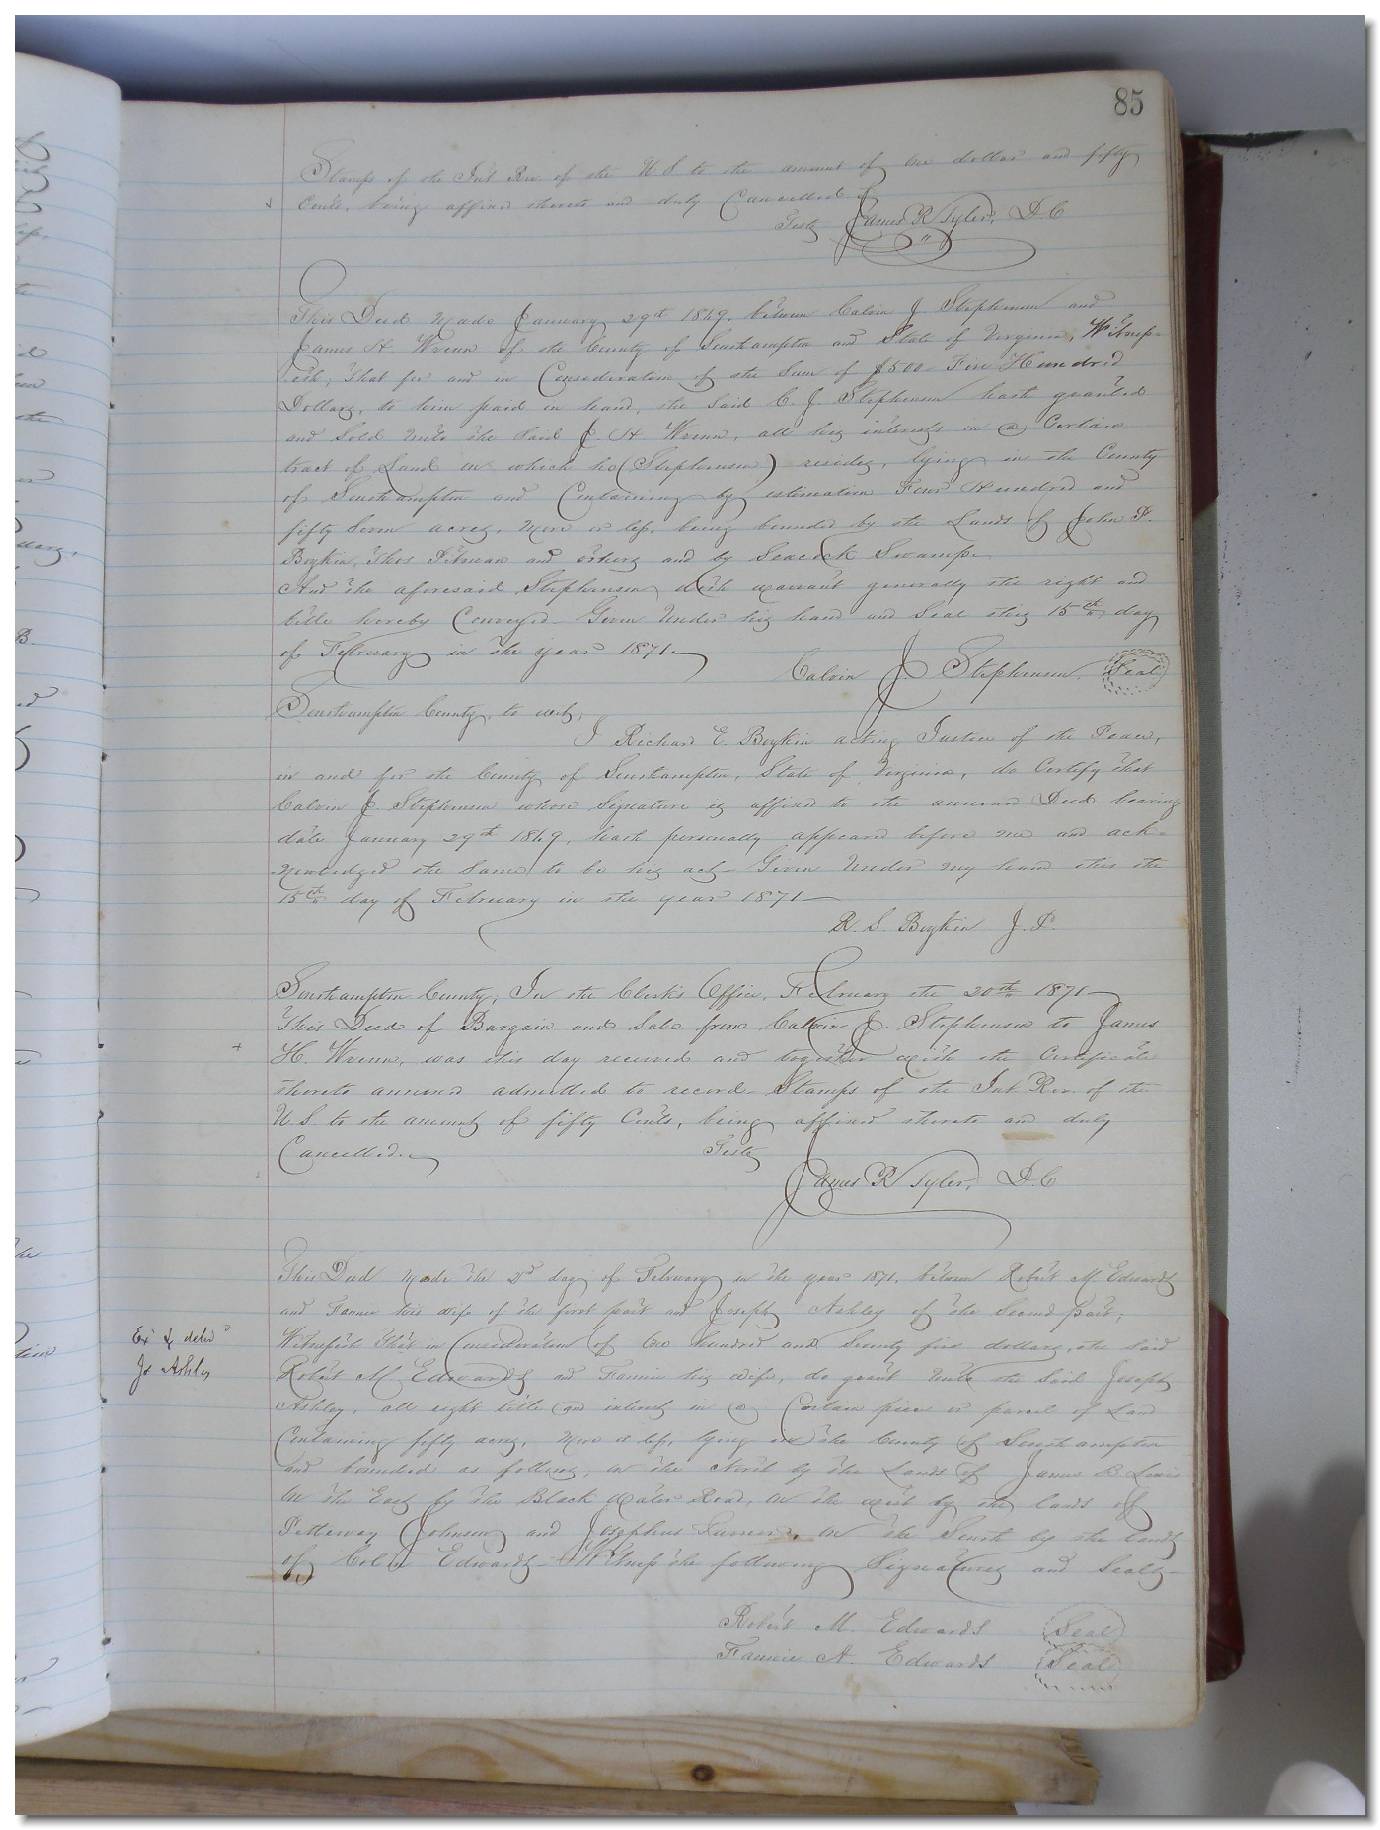 85
Stamps of the Int Rev of the U S to the amount of one dollar and fifty
Cents, being affixed thereto and duly Cancelled
Teste James R Tyler, D.C
This Deed Made January 29th 1869, between Calvin J Stephenson and
James H. Wrenn of the County of Southampton and State of Virginia, Witness-
eth, that for and in Consideration of the Sum of $500 Five Hundred
Dollars, to him paid in hand, the said C. J. Stephenson hath granted
and Sold unto the said J. H Wrenn, all his interests in a Certain
tract of Land on which he (Stephenson) resides, lying in the County
of Southampton and Containing by estimation Four Hundred and
fifty Seven acres, more or less, being bounded by the Lands of John P.
Boykin, Thos Pitman and others and by Seacock Swamp.
And the aforesaid Stephenson doth warrant generally the right and
title hereby Conveyed Given Under his hand and Seal this 15th day
of February in the year 1871.
Calvin J Stephenson Seal
Southampton County, to wit,
I Richard E. Boykin acting Justice of the Peace,
in and for the County of Southampton, State of Virginia, do Certify that
Calvin J. Stephenson whose Signature is affixed to the annexed Deed bearing
date January 29th 1869, hath personally appeared before me and ack-
nowledged the same to be his act Given Under my hand this the
15th day of February in the year 1871
R. S. Boykin J. P.
Southampton County, In the Clerk's Office, February the 20th 1871
This Deed of Bargain and Sale from Calvin J. Stephenson to James
H. Wrenn, was this day received and together with the Certificate
thereto annexed admitted to record Stamps of the Int Rev. of the
U. S to the amount of fifty Cents, being affixed thereto and duly
Cancelled.
Teste
James R Tyler, D. C
This Deed Made the 2nd day of February in the year 1871, between Robert M. Edwards
and Fannie his wife of the first part and Joseph Ashley of the Second part,
Ex & deld
Jo Ashley
Witnesseth that in Consideration of One hundred and Seventy five dollars, the said
Robert M Edwards and Fannie his wife, do grant unto the Said Joseph
Ashley, all right title and interest in a Certain piece or parcel of Land
Containing fifty acres, more or less, lying in the County of Southampton
and bounded as follows, on the North by the Lands of James B. Lewis
On the East by the Black water Road, on the West by the lands of
Pettaway Johnson and Josephus Turner, on the South by the lands
of Edwards Witness the following Signatures and Seals
Robert M. Edwards Seal
Fannie A. Edwards Seal